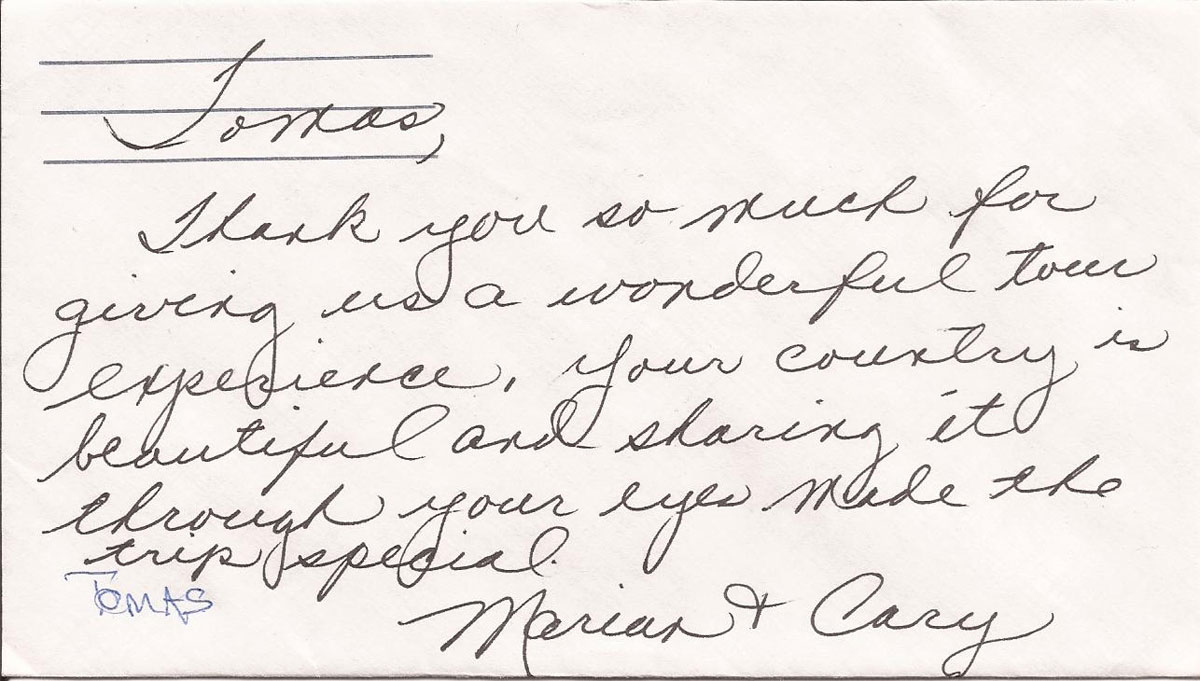 Tomas,
Thank you so much for
giving us a wonderful tour
experience. Your country is
beautiful and sharing it
through your eyes made the
trip special.
TOMAS
Marian & Cary